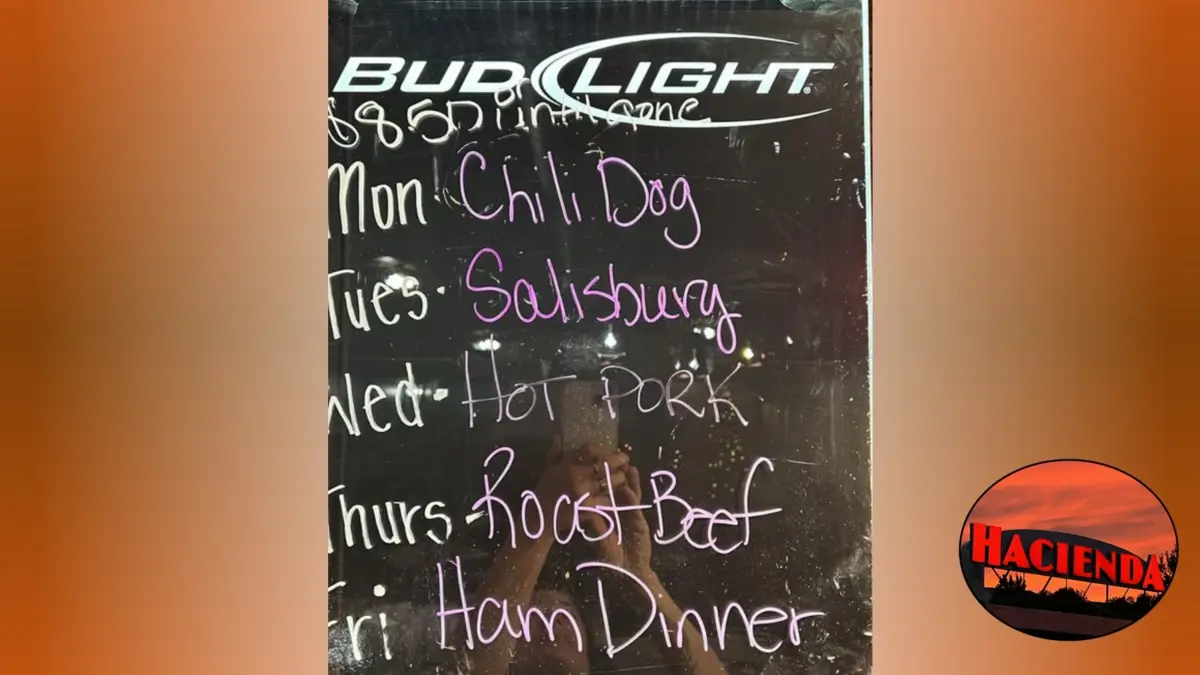 BUD LIGHT
$850 until gone
Mon Chili Dog
Tues- Salisbury
Wed- HOT PORK
Thurs- Roast Beef
Fri Ham Dinner
HACIENDA